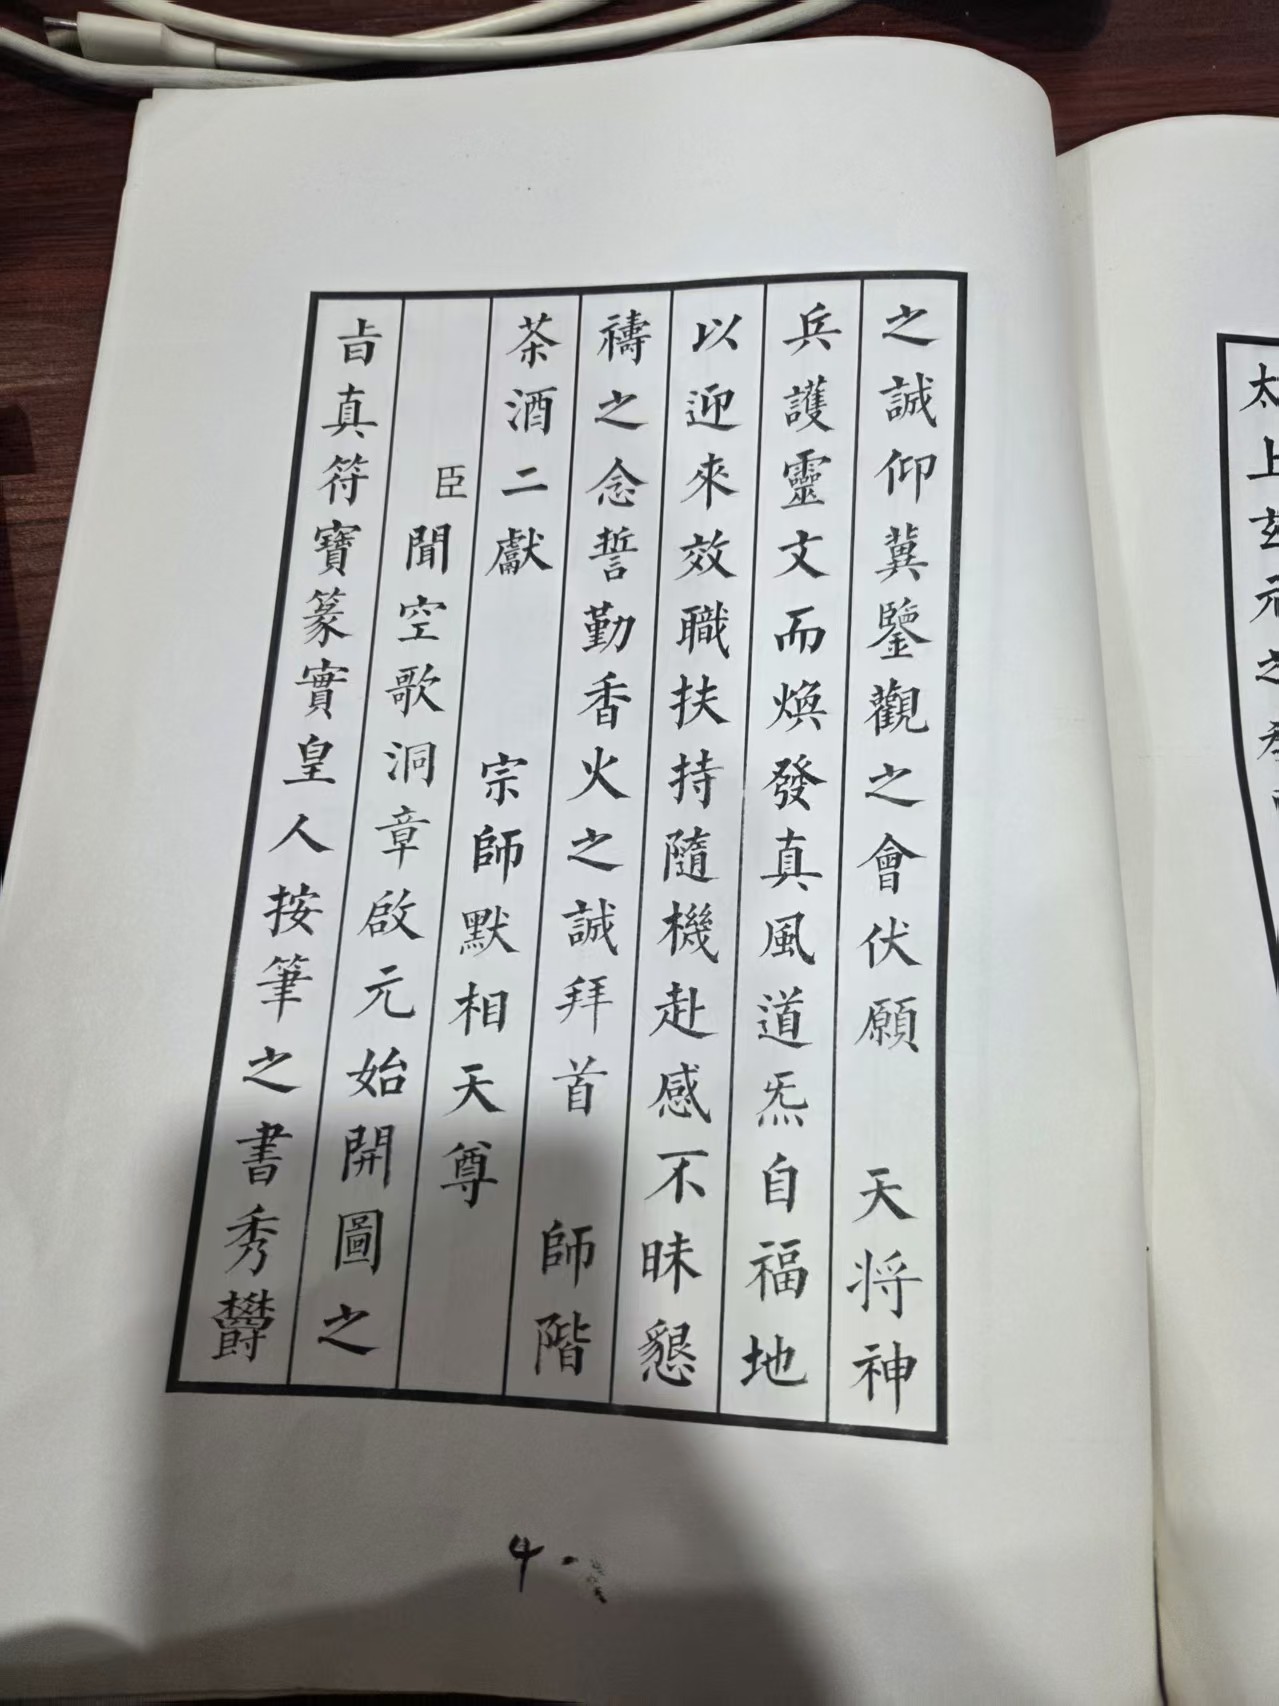 之誠仰冀鑒觀之會伏願　天將神
兵護靈文而煥發真風道炁自福地
以迎來效職扶持隨機赴感不昧懇
禱之念誓勤香火之誠拜首　師階
茶酒二獻　　宗師默相天尊
臣聞空歌洞章啟元始開圖之
旨真符寶篆實皇人按筆之書秀欝
4.
太上玄元之